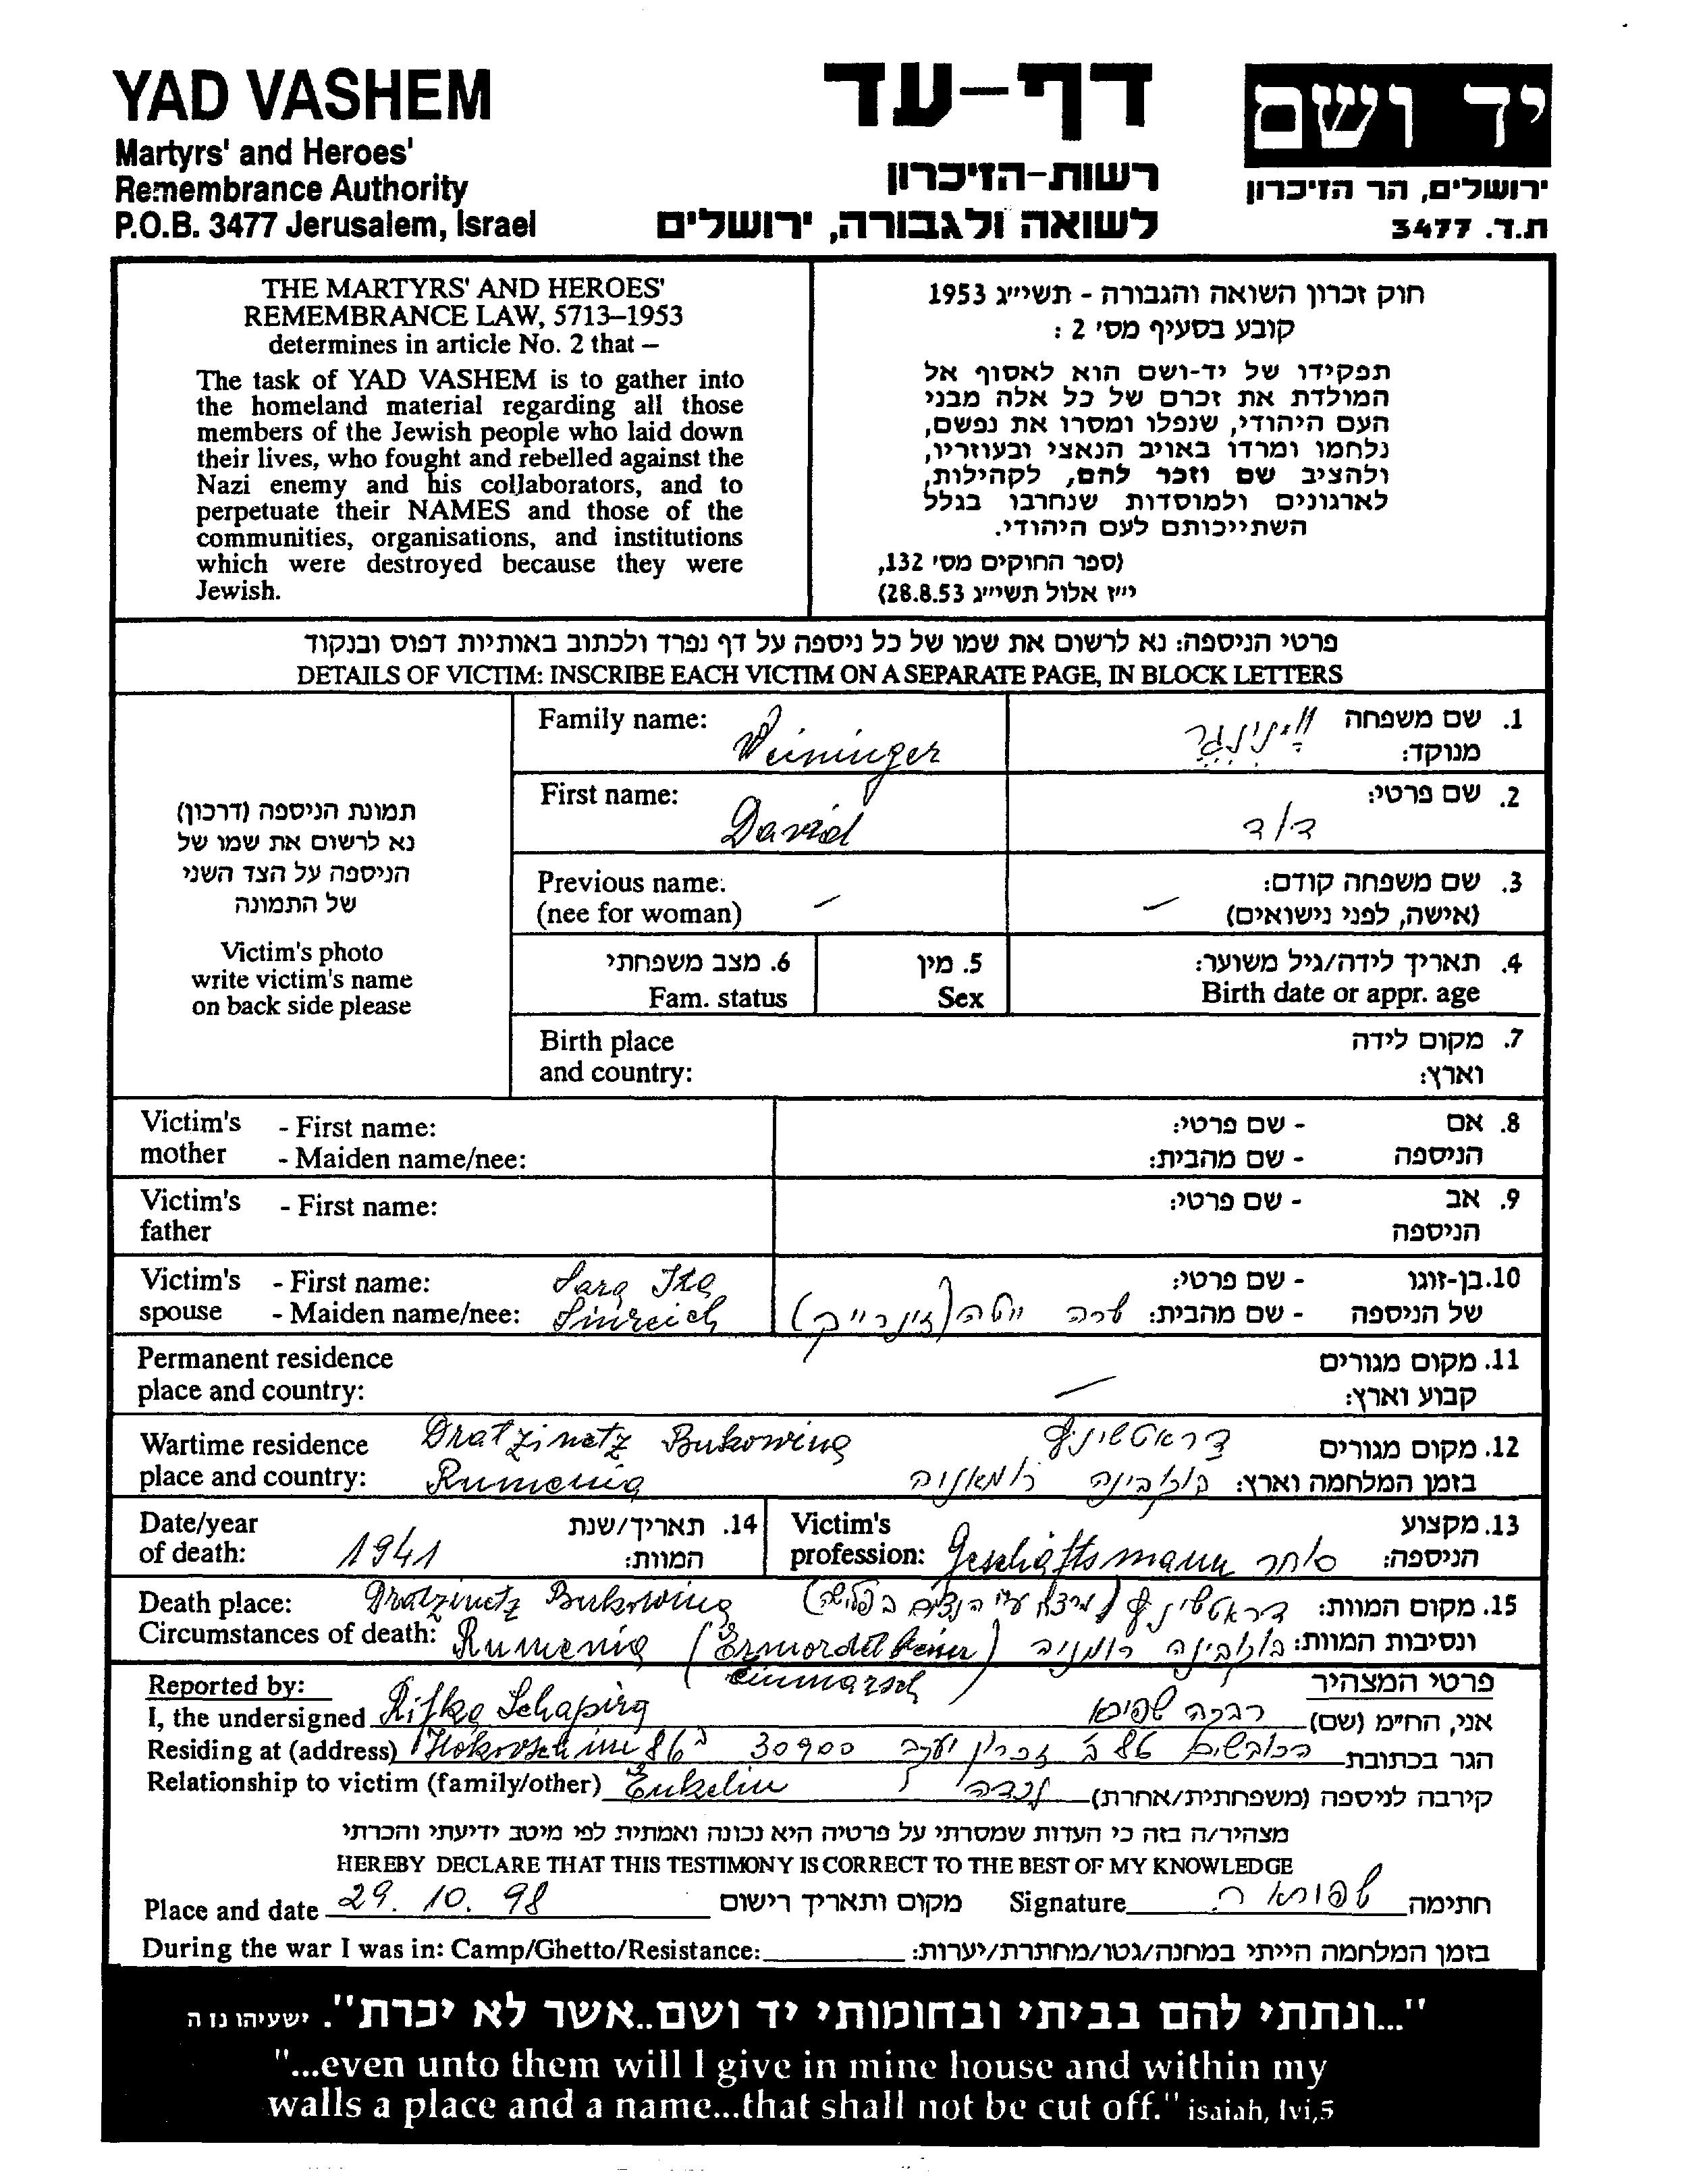 YAD VASHEM
Martyrs' and Heroes'
Remembrance Authority
P.O.B. 3477 Jerusalem, Israel
דף-עד
רשות-הזיכרון
לשואה ולגבורה, ירושלים
יד ושם
ירושלים, הר הזיכרון
ת.ד. 3477
THE MARTYRS' AND HEROES'
REMEMBRANCE LAW, 5713–1953
determines in article No. 2 that –
The task of YAD VASHEM is to gather into
the homeland material regarding all those
members of the Jewish people who laid down
their lives, who fought and rebelled against the
Nazi enemy and his collaborators, and to
perpetuate their NAMES and those of the
communities, organisations, and institutions
which were destroyed because they were
Jewish.
חוק זכרון השואה והגבורה - תשי״ג 1953
קובע בסעיף מס׳ 2 :
תפקידו של יד-ושם הוא לאסוף אל
המולדת את זכרם של כל אלה מבני
העם היהודי, שנפלו ומסרו את נפשם,
נלחמו ומרדו באויב הנאצי ובעוזריו,
ולהציב שם וזכר להם, לקהילות,
לארגונים ולמוסדות שנחרבו בגלל
השתייכותם לעם היהודי.
(ספר החוקים מס׳ 132,
י״ז אלול תשי״ג 28.8.53)
פרטי הניספה: נא לרשום את שמו של כל ניספה על דף נפרד ולכתוב באותיות דפוס ובנקוד
DETAILS OF VICTIM: INSCRIBE EACH VICTIM ON A SEPARATE PAGE, IN BLOCK LETTERS
תמונת הניספה (דרכון)
נא לרשום את שמו של
הניספה על הצד השני
של התמונה
Victim's photo
write victim's name
on back side please
Family name: Weininger
1. שם משפחה ווינינגר
מנוקד:
First name: David
2. שם פרטי: דוד
Previous name: –
(nee for woman)
3. שם משפחה קודם: –
(אישה, לפני נישואים)
6. מצב משפחתי
Fam. status
5. מין
Sex
4. תאריך לידה/גיל משוער:
Birth date or appr. age
Birth place
and country:
7. מקום לידה
וארץ:
Victim's - First name:
mother - Maiden name/nee:
8. אם - שם פרטי:
הניספה - שם מהבית:
Victim's - First name:
father
9. אב - שם פרטי:
הניספה
Victim's - First name: Sara Ita
spouse - Maiden name/nee: Sinreich
10. בן-זוגו - שם פרטי:
של הניספה - שם מהבית: שרה ייטה (זינרייך)
Permanent residence
place and country:
11. מקום מגורים
קבוע וארץ: –
Wartime residence Dratzinetz Bukowina
place and country: Rumenia
12. מקום מגורים דראטשינץ
בזמן המלחמה וארץ: בוקובינה רומאניה
Date/year
of death: 1941
14. תאריך/שנת
המוות:
Victim's
profession: Geschäftsmann
13. מקצוע
הניספה: סוחר
Death place: Dratzinetz Bukowina
Circumstances of death: Rumenia (Ermordet beim
Einmarsch)
15. מקום המוות: דראטשינץ (נרצח ע״י הנצים בפלישה)
ונסיבות המוות: בוקובינה רומניה
Reported by:
פרטי המצהיר
I, the undersigned Rifka Schapira
אני, הח״מ (שם) רבקה שפירא
Residing at (address) 86 30900
הגר בכתובת 86 ב׳ זכרון יעקב
Relationship to victim (family/other) Enkelin
קירבה לניספה (משפחתית/אחרת) נכדה
מצהיר/ה בזה כי העדות שמסרתי על פרטיה היא נכונה ואמתית לפי מיטב ידיעתי והכרתי
HEREBY DECLARE THAT THIS TESTIMONY IS CORRECT TO THE BEST OF MY KNOWLEDGE
Place and date 29. 10. 98 מקום ותאריך רישום
Signature שפירא ר. חתימה
During the war I was in: Camp/Ghetto/Resistance:
בזמן המלחמה הייתי במחנה/גטו/מחתרת/יערות:
"...ונתתי להם בביתי ובחומותי יד ושם..אשר לא יכרת". ישעיהו נז ה
"...even unto them will I give in mine house and within my
walls a place and a name...that shall not be cut off." isaiah, lvi,5